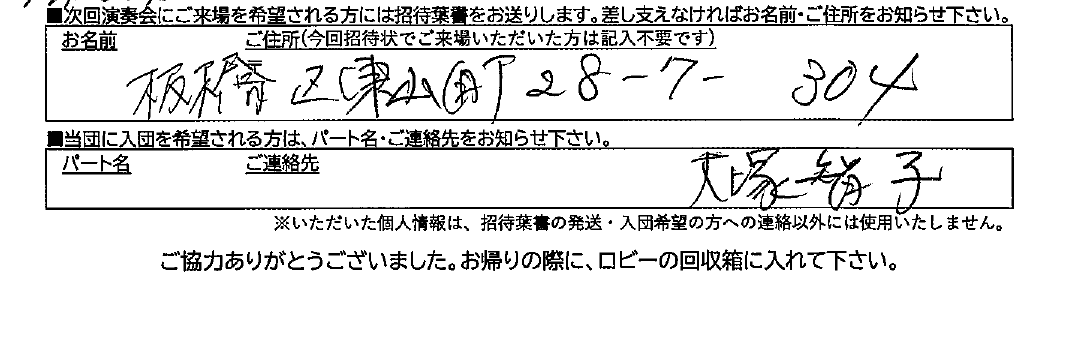 ■次回演奏会にご来場を希望される方には招待葉書をお送りします。差し支えなければお名前・ご住所をお知らせ下さい。
お名前 ご住所(今回招待状でご来場いただいた方は記入不要です)
板橋区東山町28-7-304
■当団に入団を希望される方は、パート名・ご連絡先をお知らせ下さい。
パート名 ご連絡先
大塚 子
※いただいた個人情報は、招待葉書の発送・入団希望の方への連絡以外には使用いたしません。
ご協力ありがとうございました。お帰りの際に、ロビーの回収箱に入れて下さい。